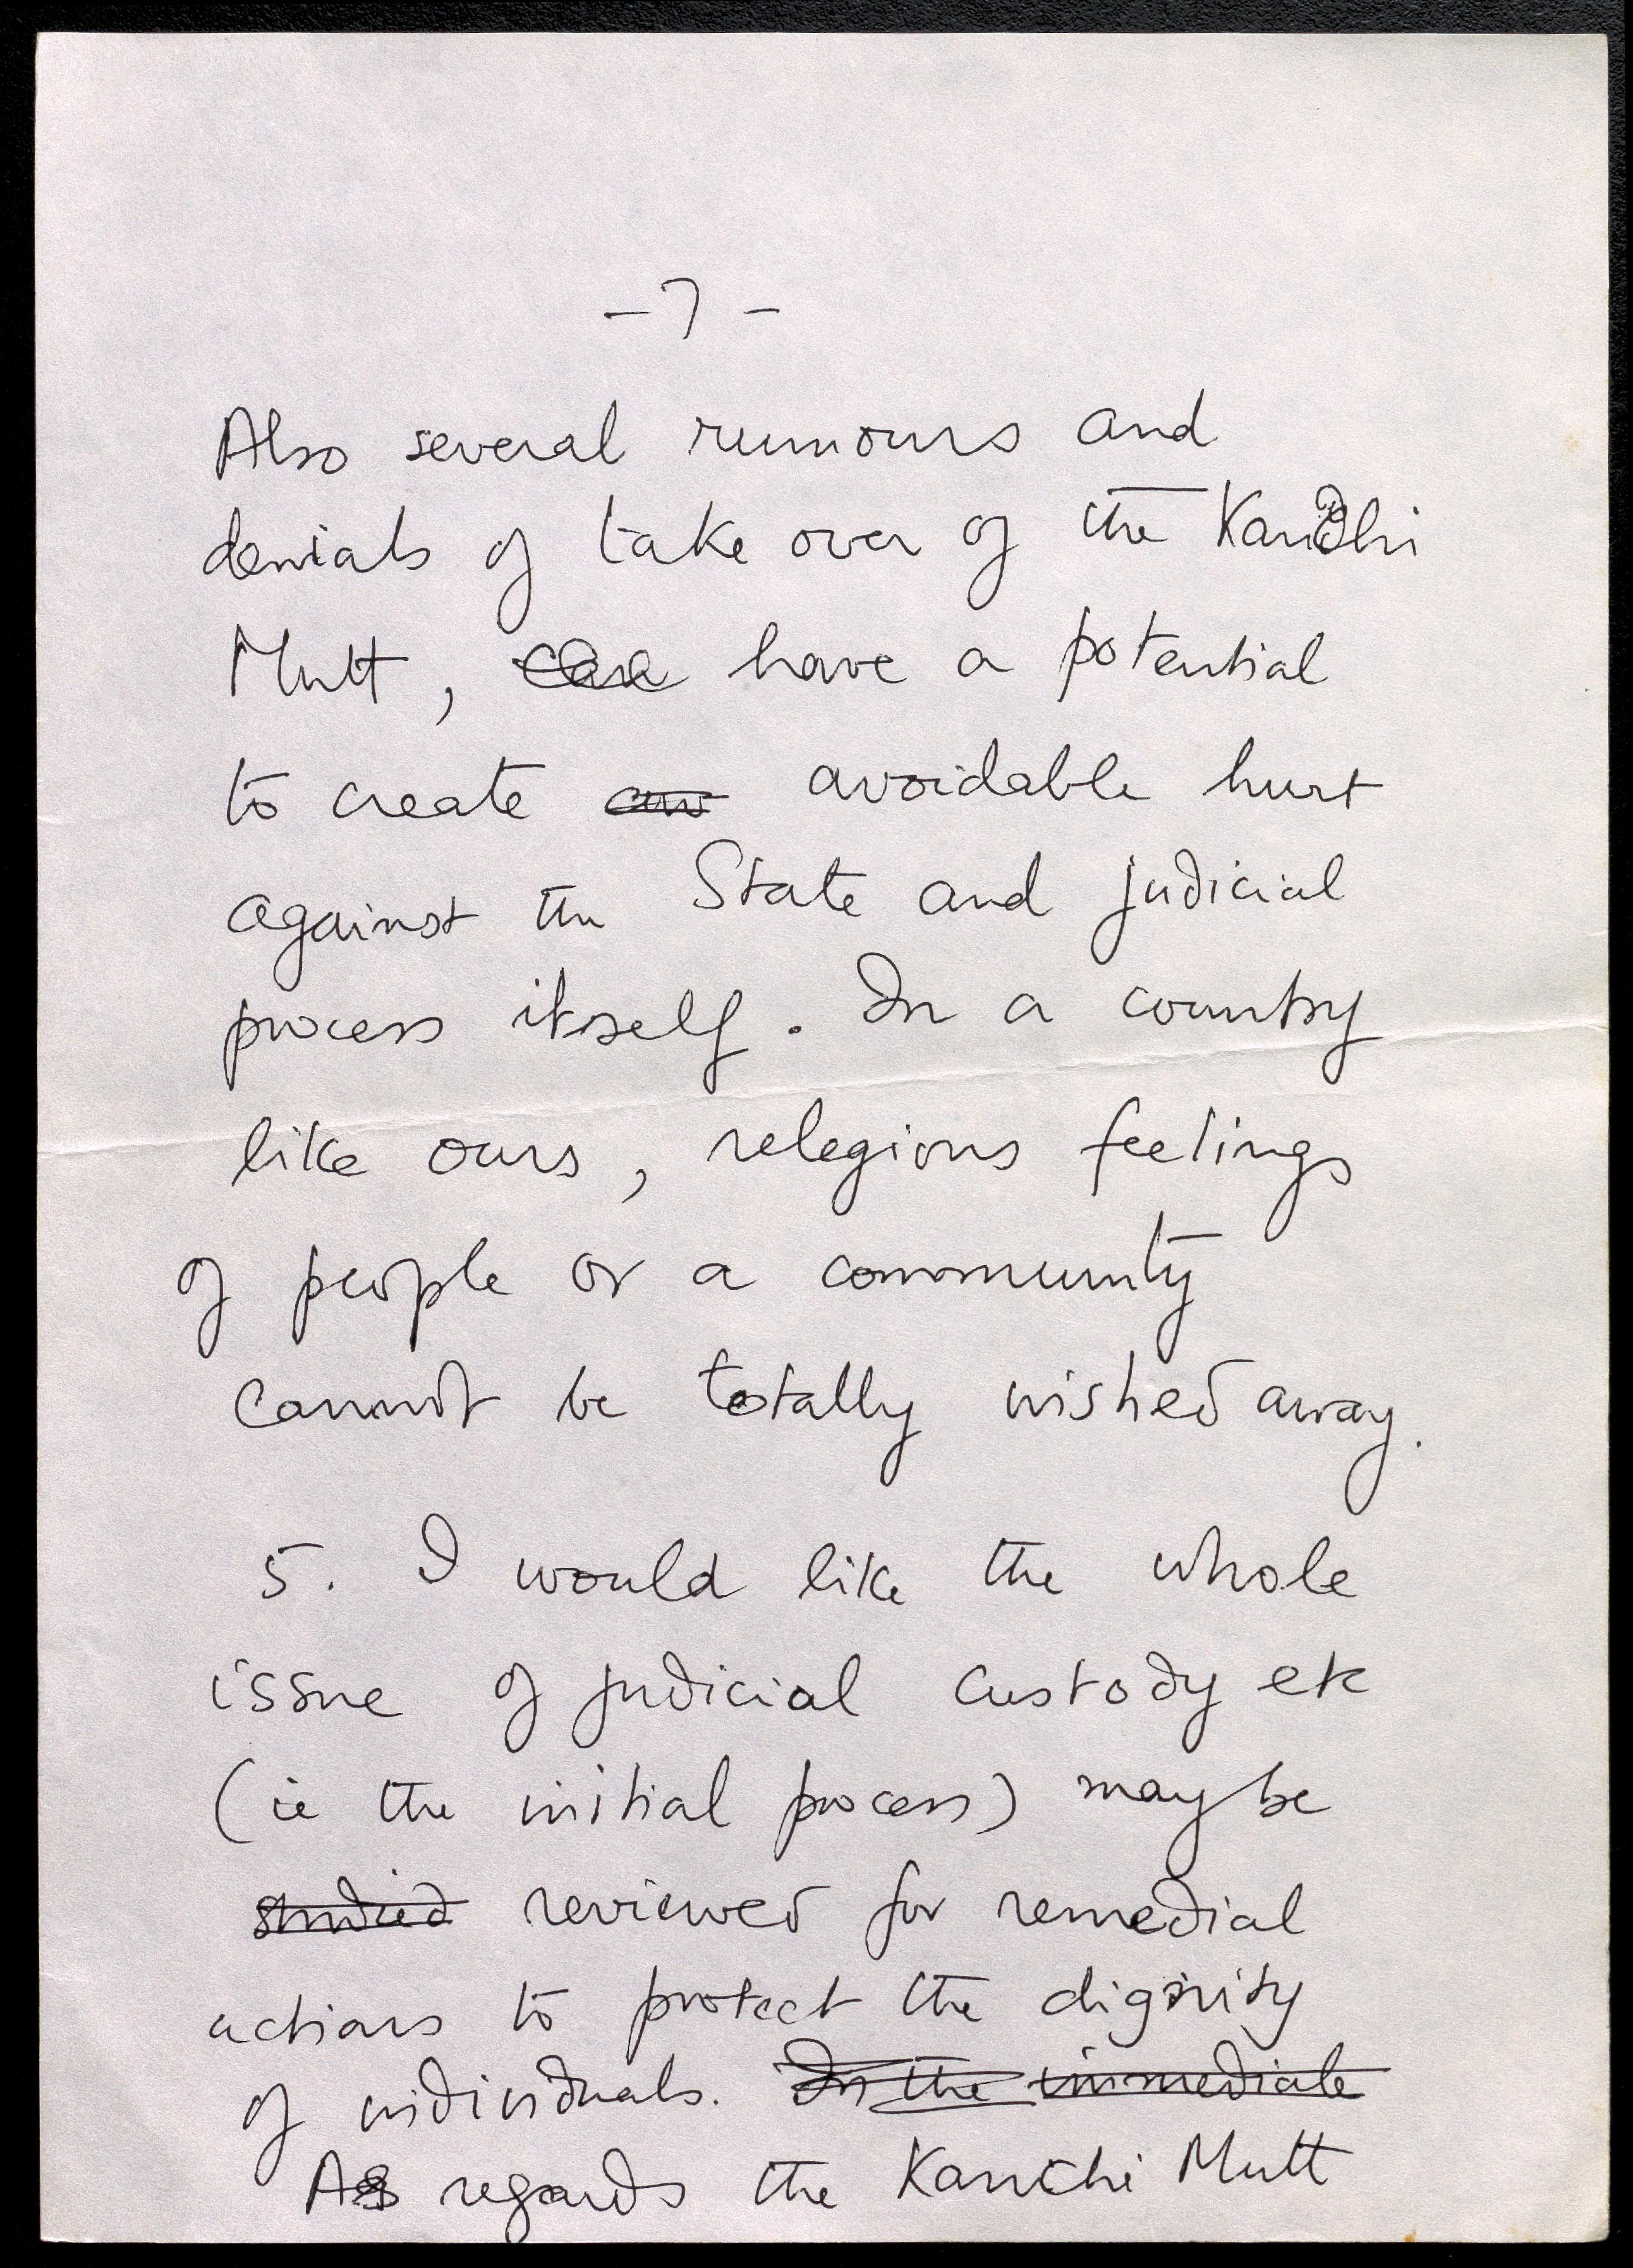 - 7 -
Also several rumours and
denials of take over of the Kanchi
Mutt, have a potential
to create avoidable hurt
against the State and judicial
process itself. In a country
like ours, relegious feelings
of people or a community
cannot be totally wished away.
5. I would like the whole
issue of judicial custody etc
(ie the initial process) may be
studied reviewed for remedial
actions to protect the dignity
of individuals. In the immediate
As regards the Kanchi Mutt